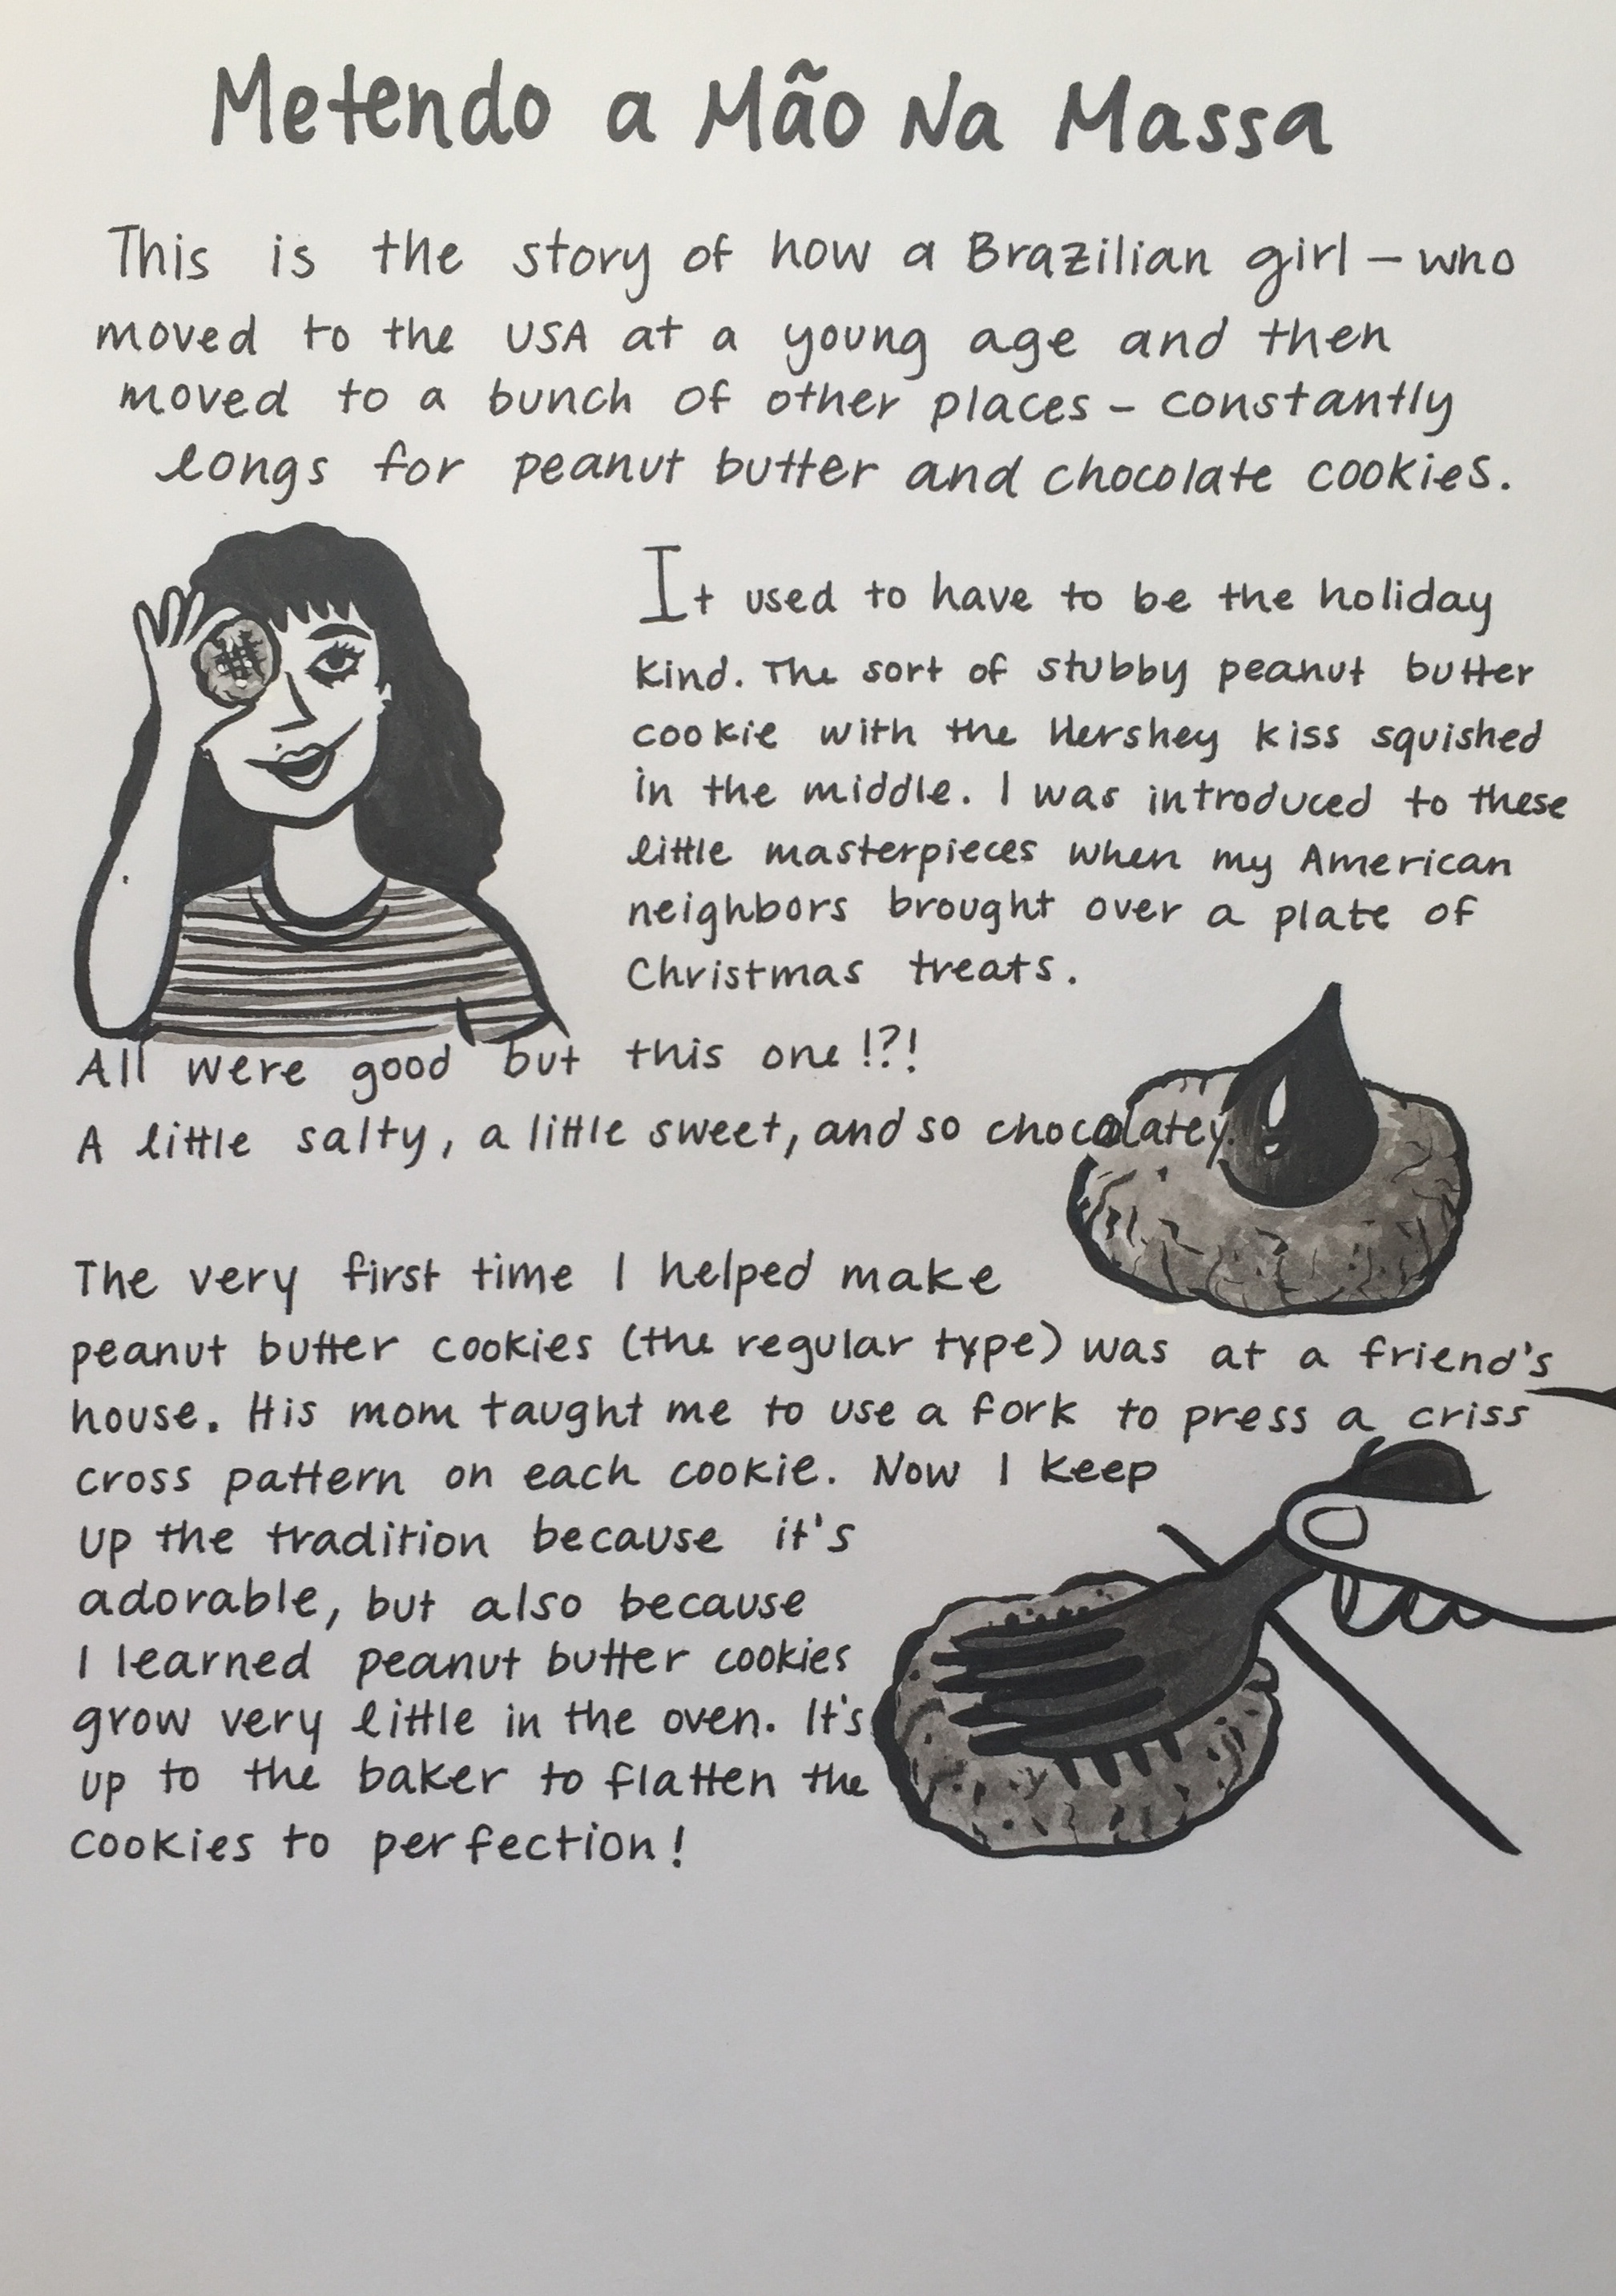 Metendo a Mão Na Massa
This is the story of how a Brazilian girl – who
moved to the USA at a young age and then
moved to a bunch of other places – constantly
longs for peanut butter and chocolate cookies.
It used to have to be the holiday
kind. The sort of stubby peanut butter
cookie with the Hershey kiss squished
in the middle. I was introduced to these
little masterpieces when my American
neighbors brought over a plate of
Christmas treats.
All were good but this one!?!
A little salty, a little sweet, and so chocolatey.
The very first time I helped make
peanut butter cookies (the regular type) was at a friend's
house. His mom taught me to use a fork to press a criss
cross pattern on each cookie. Now I keep
up the tradition because it's
adorable, but also because
I learned peanut butter cookies
grow very little in the oven. It's
up to the baker to flatten the
cookies to perfection!